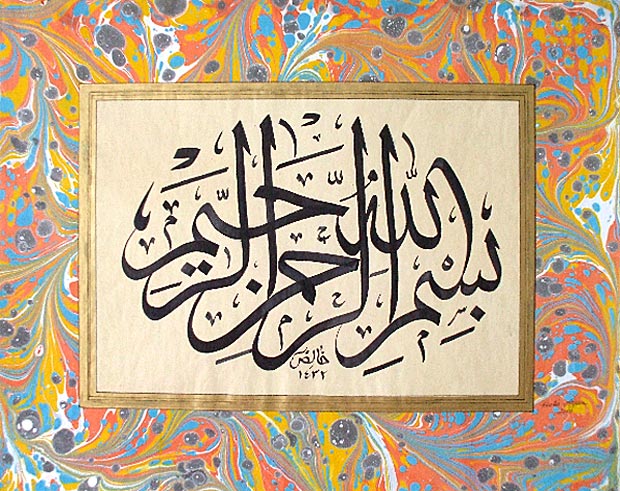 بسم الله الرحمن الرحيم
خالص
١٤٣٢